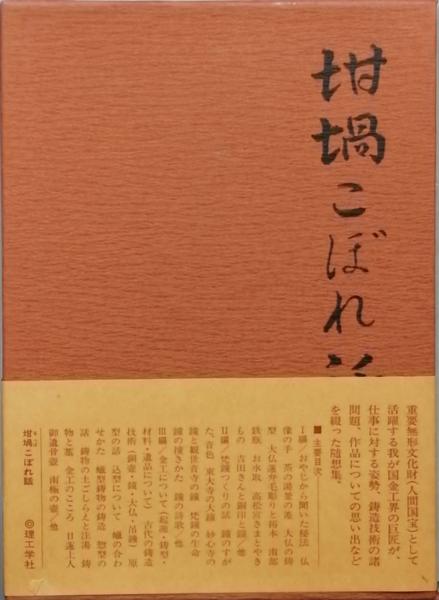 坩堝こぼれ
重要無形文化財(人間国宝)として
活躍する我が国金工界の巨匠が、
仕事に対する姿勢、鋳造技術の諸
問題、作品についての思い出など
を綴った随想集。
■主要目次
I編/おやじから聞いた秘法 仏
像の手 茶の湯釜の美 大仏の鋳
型 大仏蓮弁毛彫りと拓本 南部
鉄瓶 お水取 高松宮さまとやき
もの 吉田さんと銅印と鐘/他
II編/梵鐘づくりの話 鐘のすが
た、音色 東大寺の大鐘 妙心寺の
鐘と観世音寺の鐘 梵鐘の生命
鐘の撞きかた 鐘の詩歌/他
III編/金工について(起源・鋳型・
材料・遺品について) 古代の鋳造
技術(銅壺・鏡・大仏・吊鐘) 原
型の話 込型について 蠟の合わ
せかた 蠟型鋳物の鋳造 惣型の
話 鋳物の土ごしらえと注湯 鋳
物と墓 金工のこころ 日蓮上人
御遺骨壺 南極の壺/他
坩堝こぼれ話
©理工学社